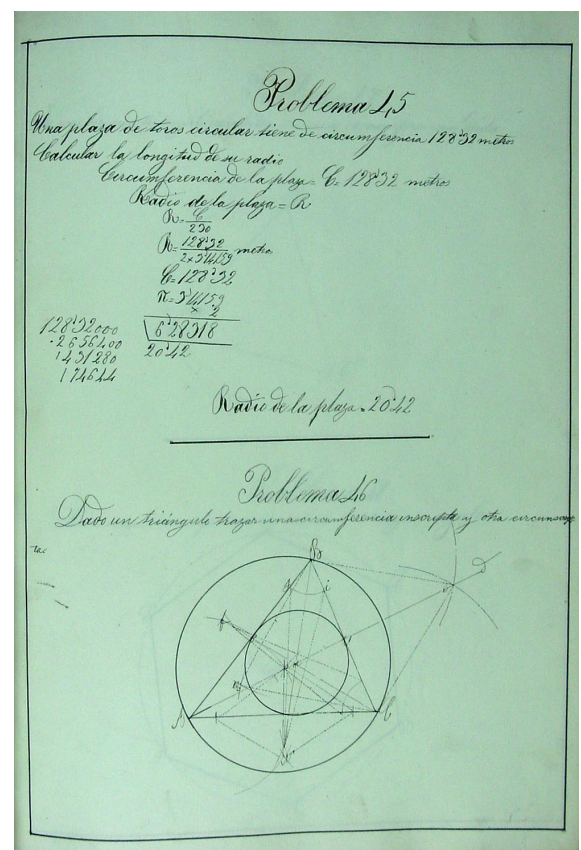 Problema 45
Una plaza de toros circular tiene de circumferencia 128'32 metros
Calcular la longitud de su radio
Circumferencia de la plaza = C = 128'32 metros
Radio de la plaza = R
R = C
2π
R = 128'32 metros
2 x 3'14159
C = 128'32
π = 3'14159
x 2
128'32000 6'28318
2656400 20'42
1431280
174644
Radio de la plaza = 20'42
Problema 46
Dado un triángulo trazar una circumferencia inscripta y otra circunscrip
ta
B
i
D
A
C